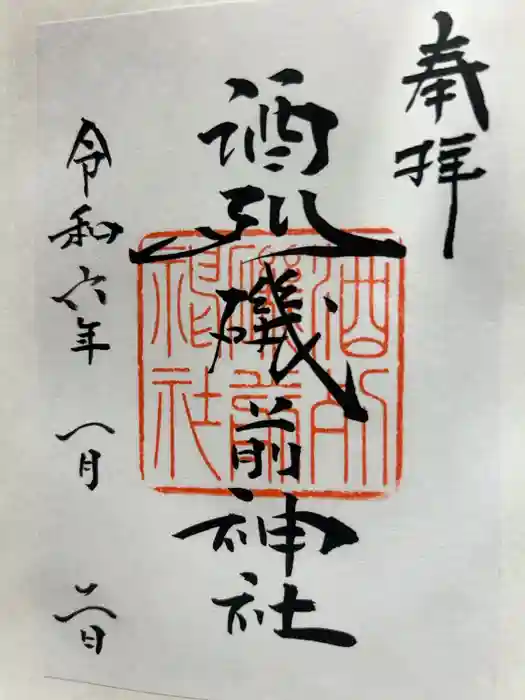 奉拝
酒列磯前神社
酒列
磯前
神社
令和六年 一月 二日